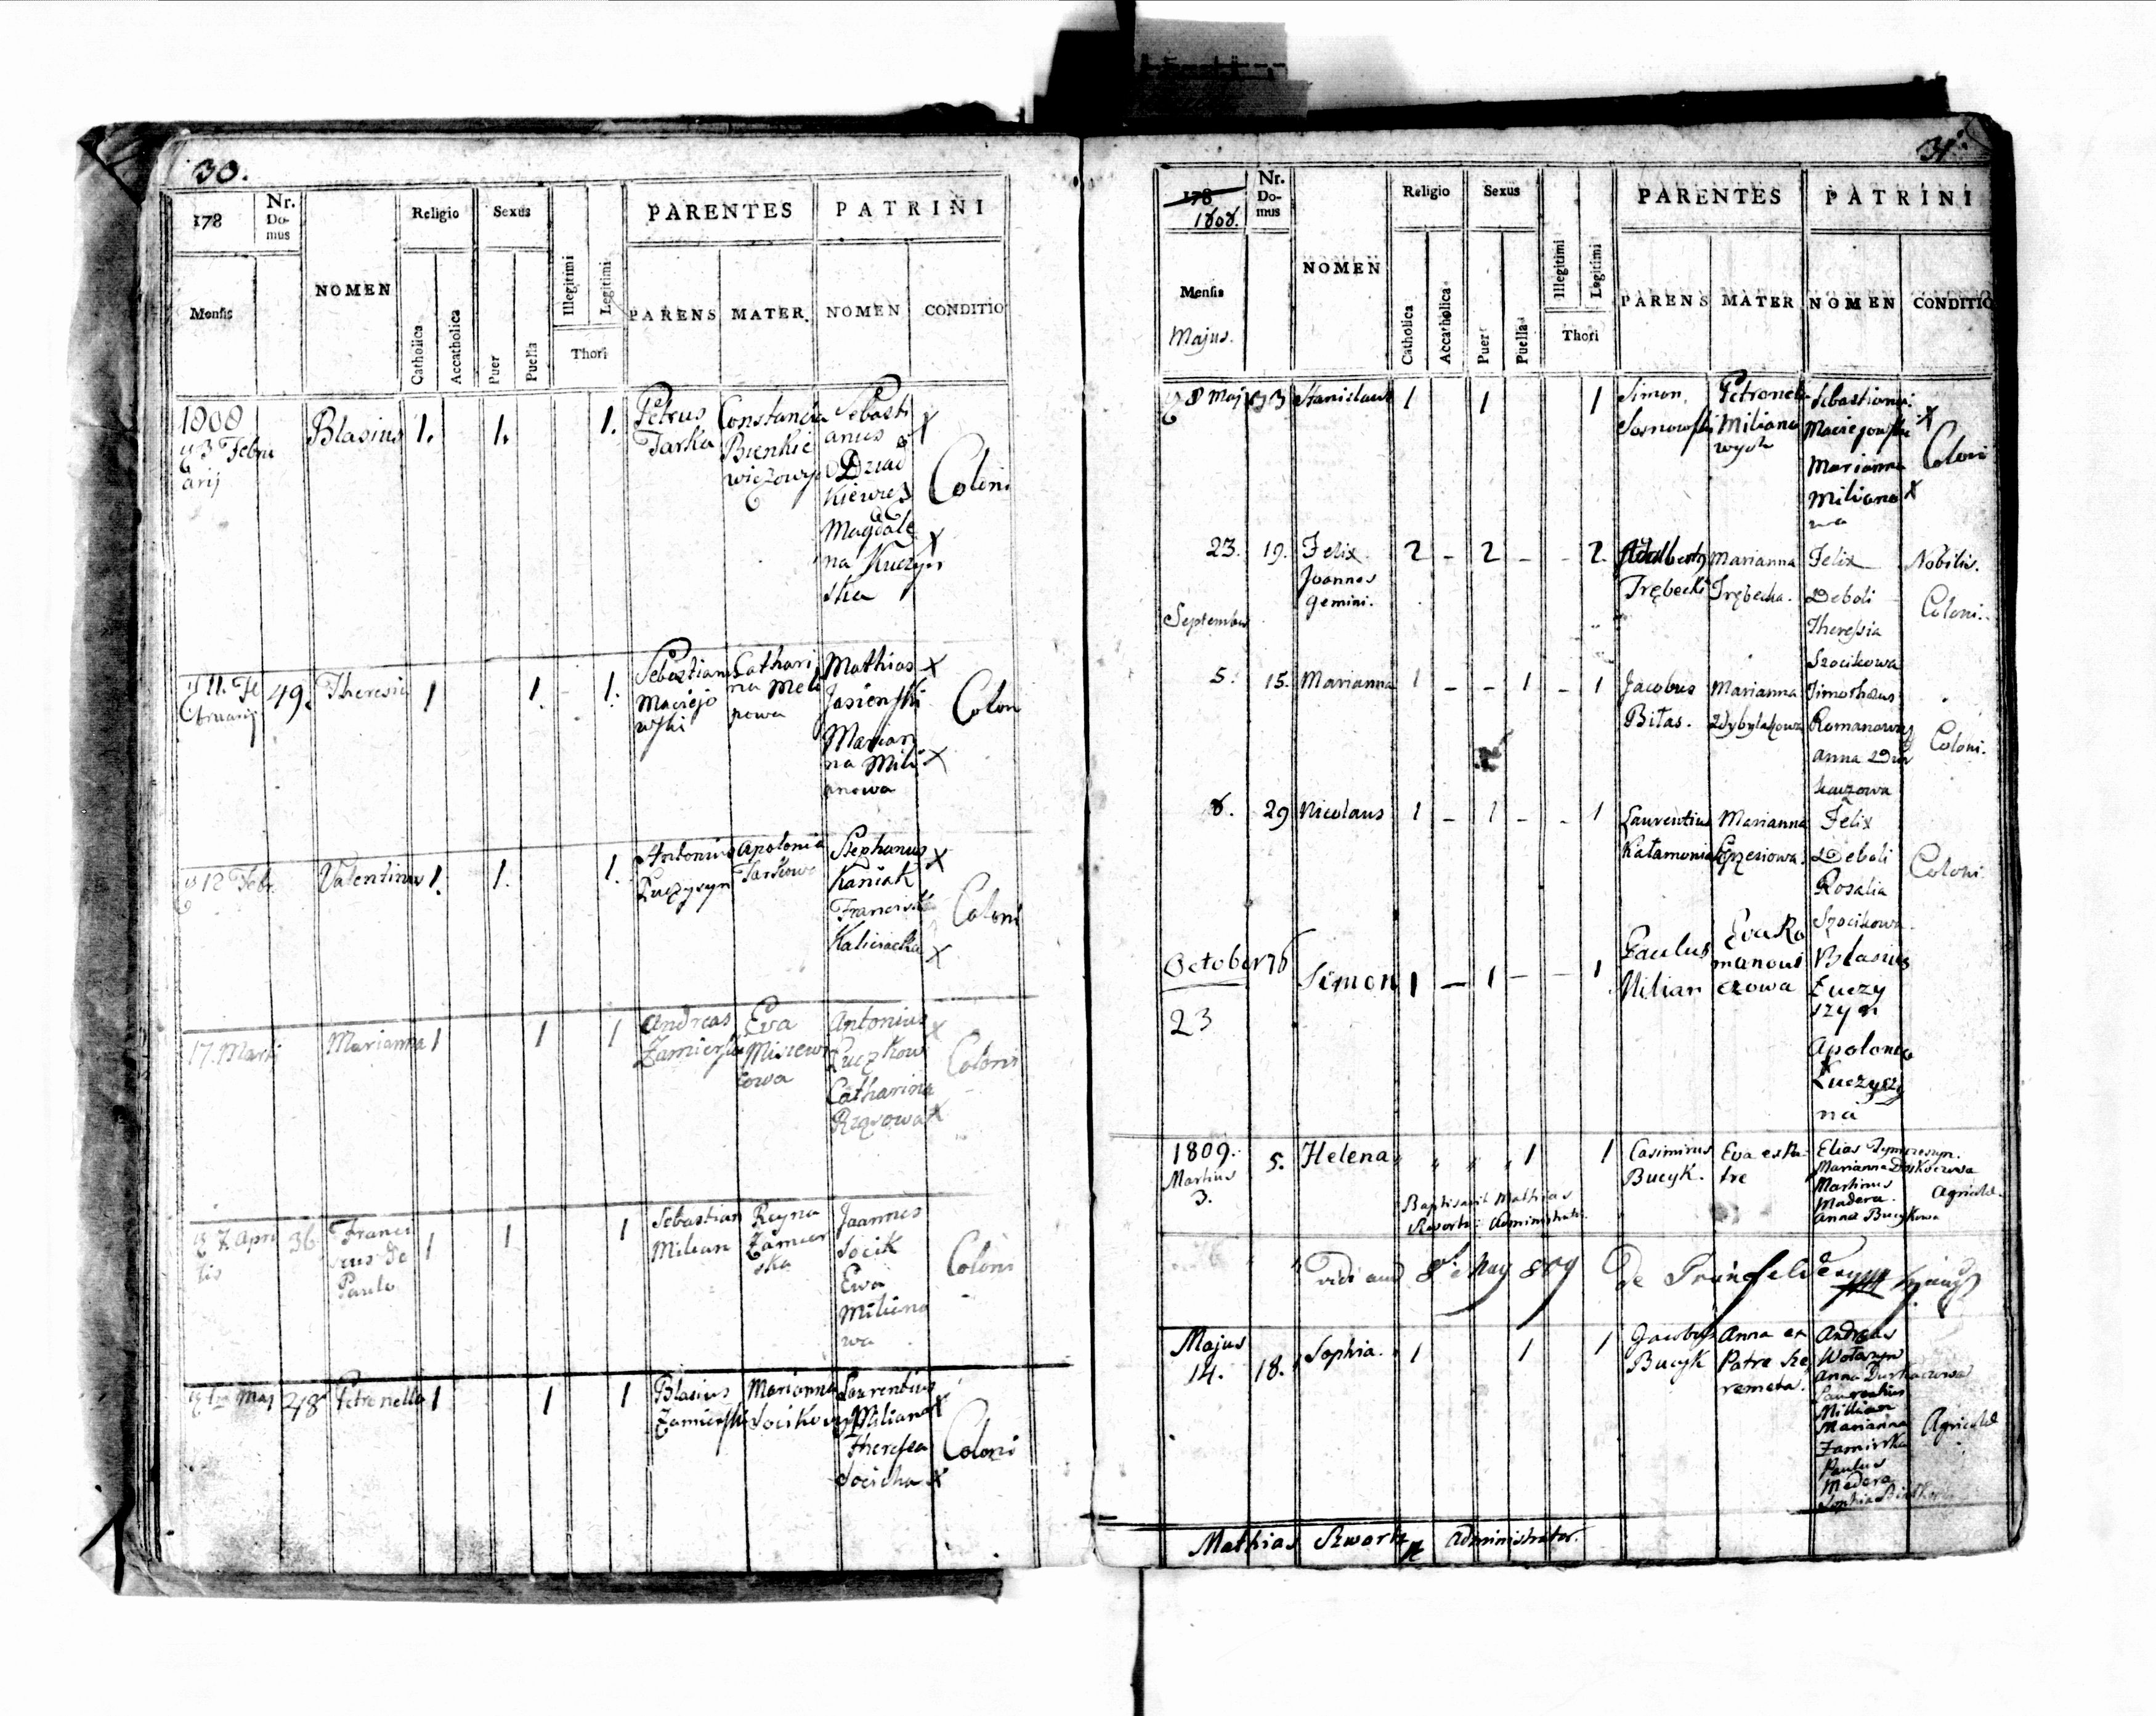 30.
178
Nr. Domus
Mensis
NOMEN
Religio
Catholica
Accatholica
Sexus
Puer
Puella
Illegitimi
Legitimi
Thori
PARENTES
PARENS
MATER.
PATRINI
NOMEN
CONDITIO
1808
3 Febru
arij
Blasius
1.
1.
1.
Petrus
Tarka
Constancia
Bienkie
wiczowy
Sebasti
anus
Dziad
kiewicz
Magdale
na Kuczyn
ska
Coloni
11. Fe
bruarij
49.
Theresia
1
1.
1.
Sebastian
Maciejo
wski
Cathari
na Meli
powa
Mathias
Jasienski
Marian
na Mili
anowa
Colon
12 Febr.
Valentinus
1.
1.
1.
Antonius
Łuczyszyn
Apolonia
Tarkowa
Stephanus
Kaniak
Francisca
Coloni
17. Marti
Marianna
1
1
1
Andreas
Zamierski
Eva
Antonius
Łuczkow
Catharina
Coloni
7 Apri
lis
36
Franci
scus de
Paulo
1
1
1
Sebastian
Milian
Regna
Zamier
ska
Joannes
Socik
Ewa
Miliano
wa
Coloni
Maj
48
Petronella
1
1
1
Blasius
Zamierski
Marianna
Laurentius
Milian
Theressa
Socicha
Coloni
31.
178
1808.
Nr. Domus
Mensis
Majus.
NOMEN
Religio
Catholica
Accatholica
Sexus
Puer
Puella
Illegitimi
Legitimi
Thori
PARENTES
PARENS
MATER
PATRINI
NOMEN
CONDITIO
8 Maj
Stanislaus
1
1
1
Simon
Sosnowski
Petronela
Miliano
Sebastianus
Maciejowski
Marianna
Miliano
wa
Coloni
23.
19.
Felix
Joannes
gemini.
2 - 2 - - 2.
Adalbertus
Trębecki
Marianna
Trębecka.
Felix
Deboli
Theressia
Szocikowa
Nobilis.
Coloni.
Septembris
5.
15.
Marianna
1 - - 1 - 1
Jacobus
Biłas.
Marianna
Timotheus
Romanowicz
Anna Dur
kaczowa
Coloni.
8.
29
Nicolaus
1 - 1 - - 1
Laurentius
Marianna
Felix
Deboli
Rosalia
Szocikowa
Coloni.
October
23
Simon
1 - 1 - - 1
Paulus
Milian
Eva Ro
manowi
czowa
Blasius
Łuczy
szyn
Apolonia
Łuczyszy
na
1809.
Martius
3.
5.
Helena
1
1
Casimirus
Bucyk.
Eva es Pa
tre
Elias
Marianna
Martinus
Madera.
Anna Bucykowa
Agricolæ.
Baptisavit Mathias
Szwartz Administrator
Vidi
8
May 809
Majus
14.
18.
Sophia.
1
1
1
Jacobus
Bucyk
Anna ex
Patre Sze
remeta.
Andreas
Wołoszyn
Anna Durkaczowa
Laurentius
Millian
Marianna
Zamirska
Paulus
Madera
Agricolæ
Mathias Szwartz Administrator.